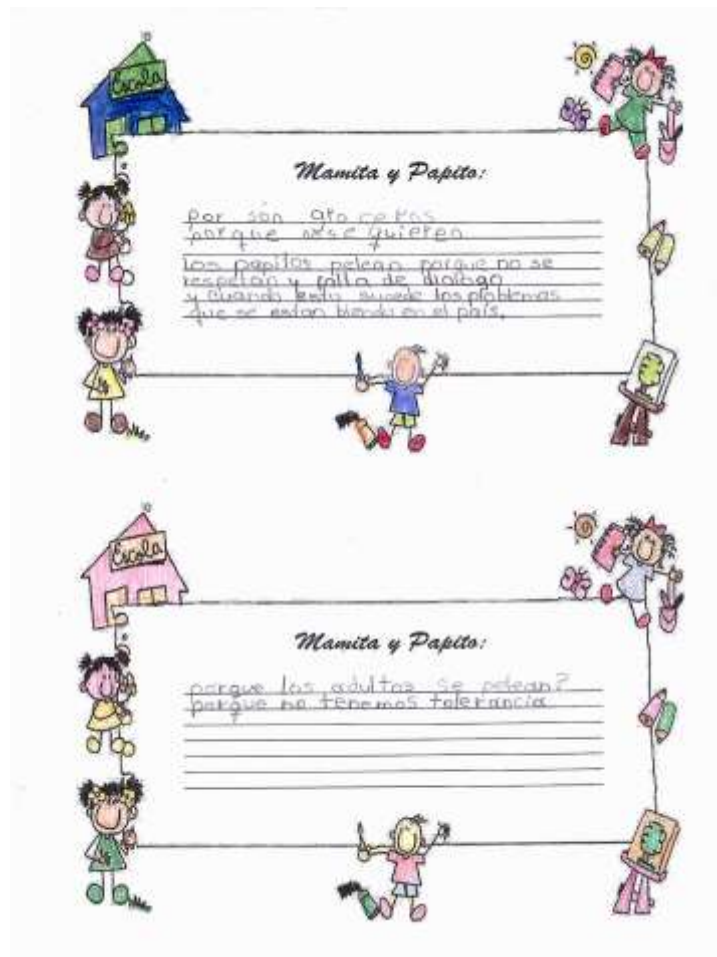 Escola
Mamita y Papito:
por són gro ceros
porque no se quieren
Los papitos pelean porque no se
respetan y falta de dialogo
y cuando esto sucede los problemas
que se estan biendo en el país.
Escola
Mamita y Papito:
porque los adultos se pelean?
porque no tenemos tolerancia